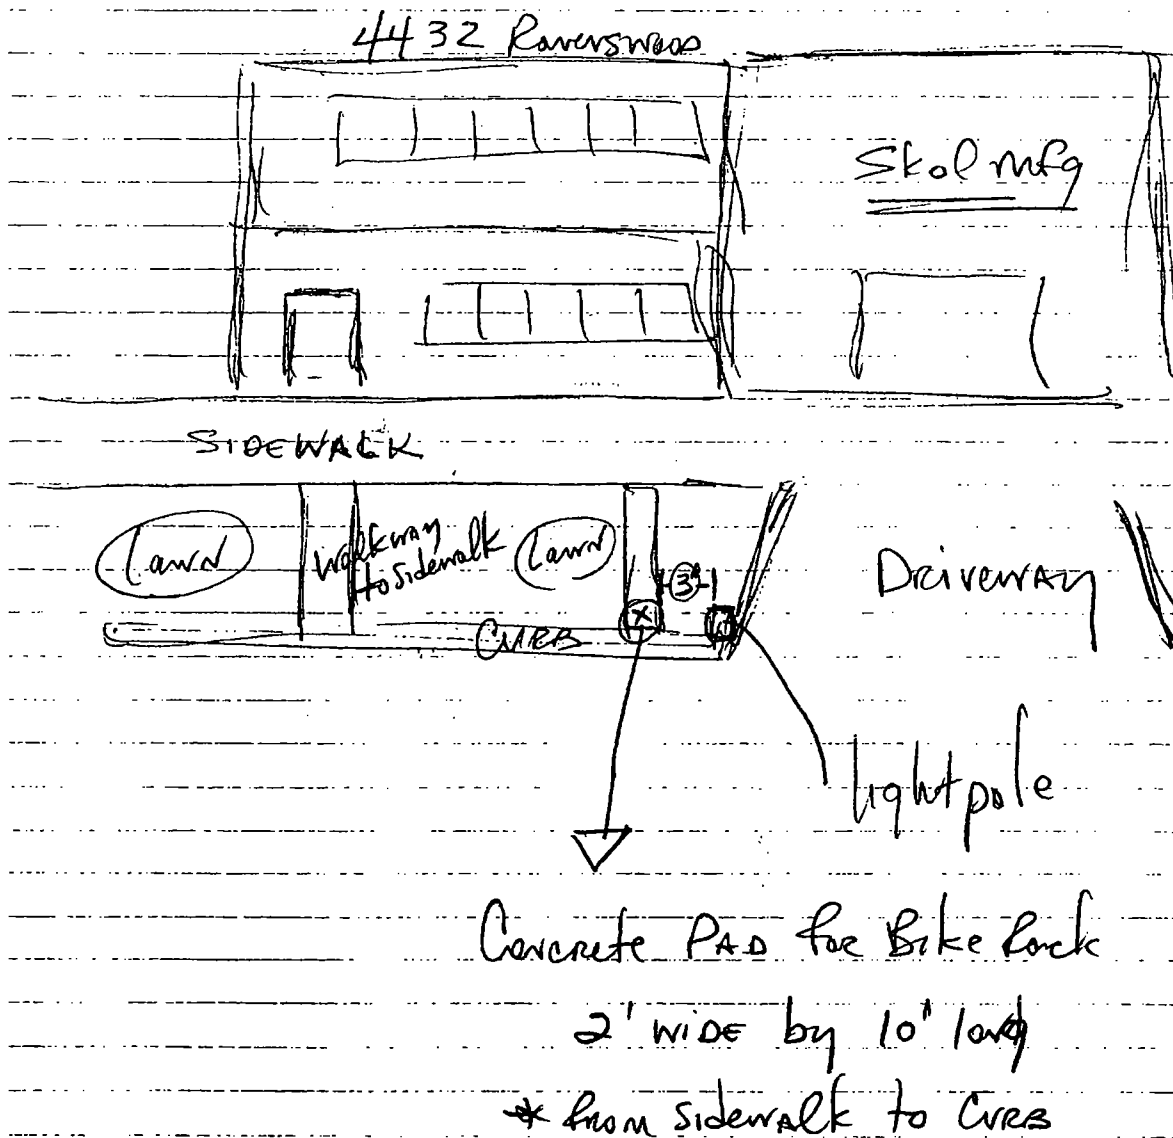 4432 Ravenswood
Skol mfg
SIDEWALK
Lawn
walkway
to sidewalk
Lawn
3'
X
CURB
Driveway
lightpole
Concrete PAD for Bike Rack
2' WIDE by 10' long
* from sidewalk to CURB